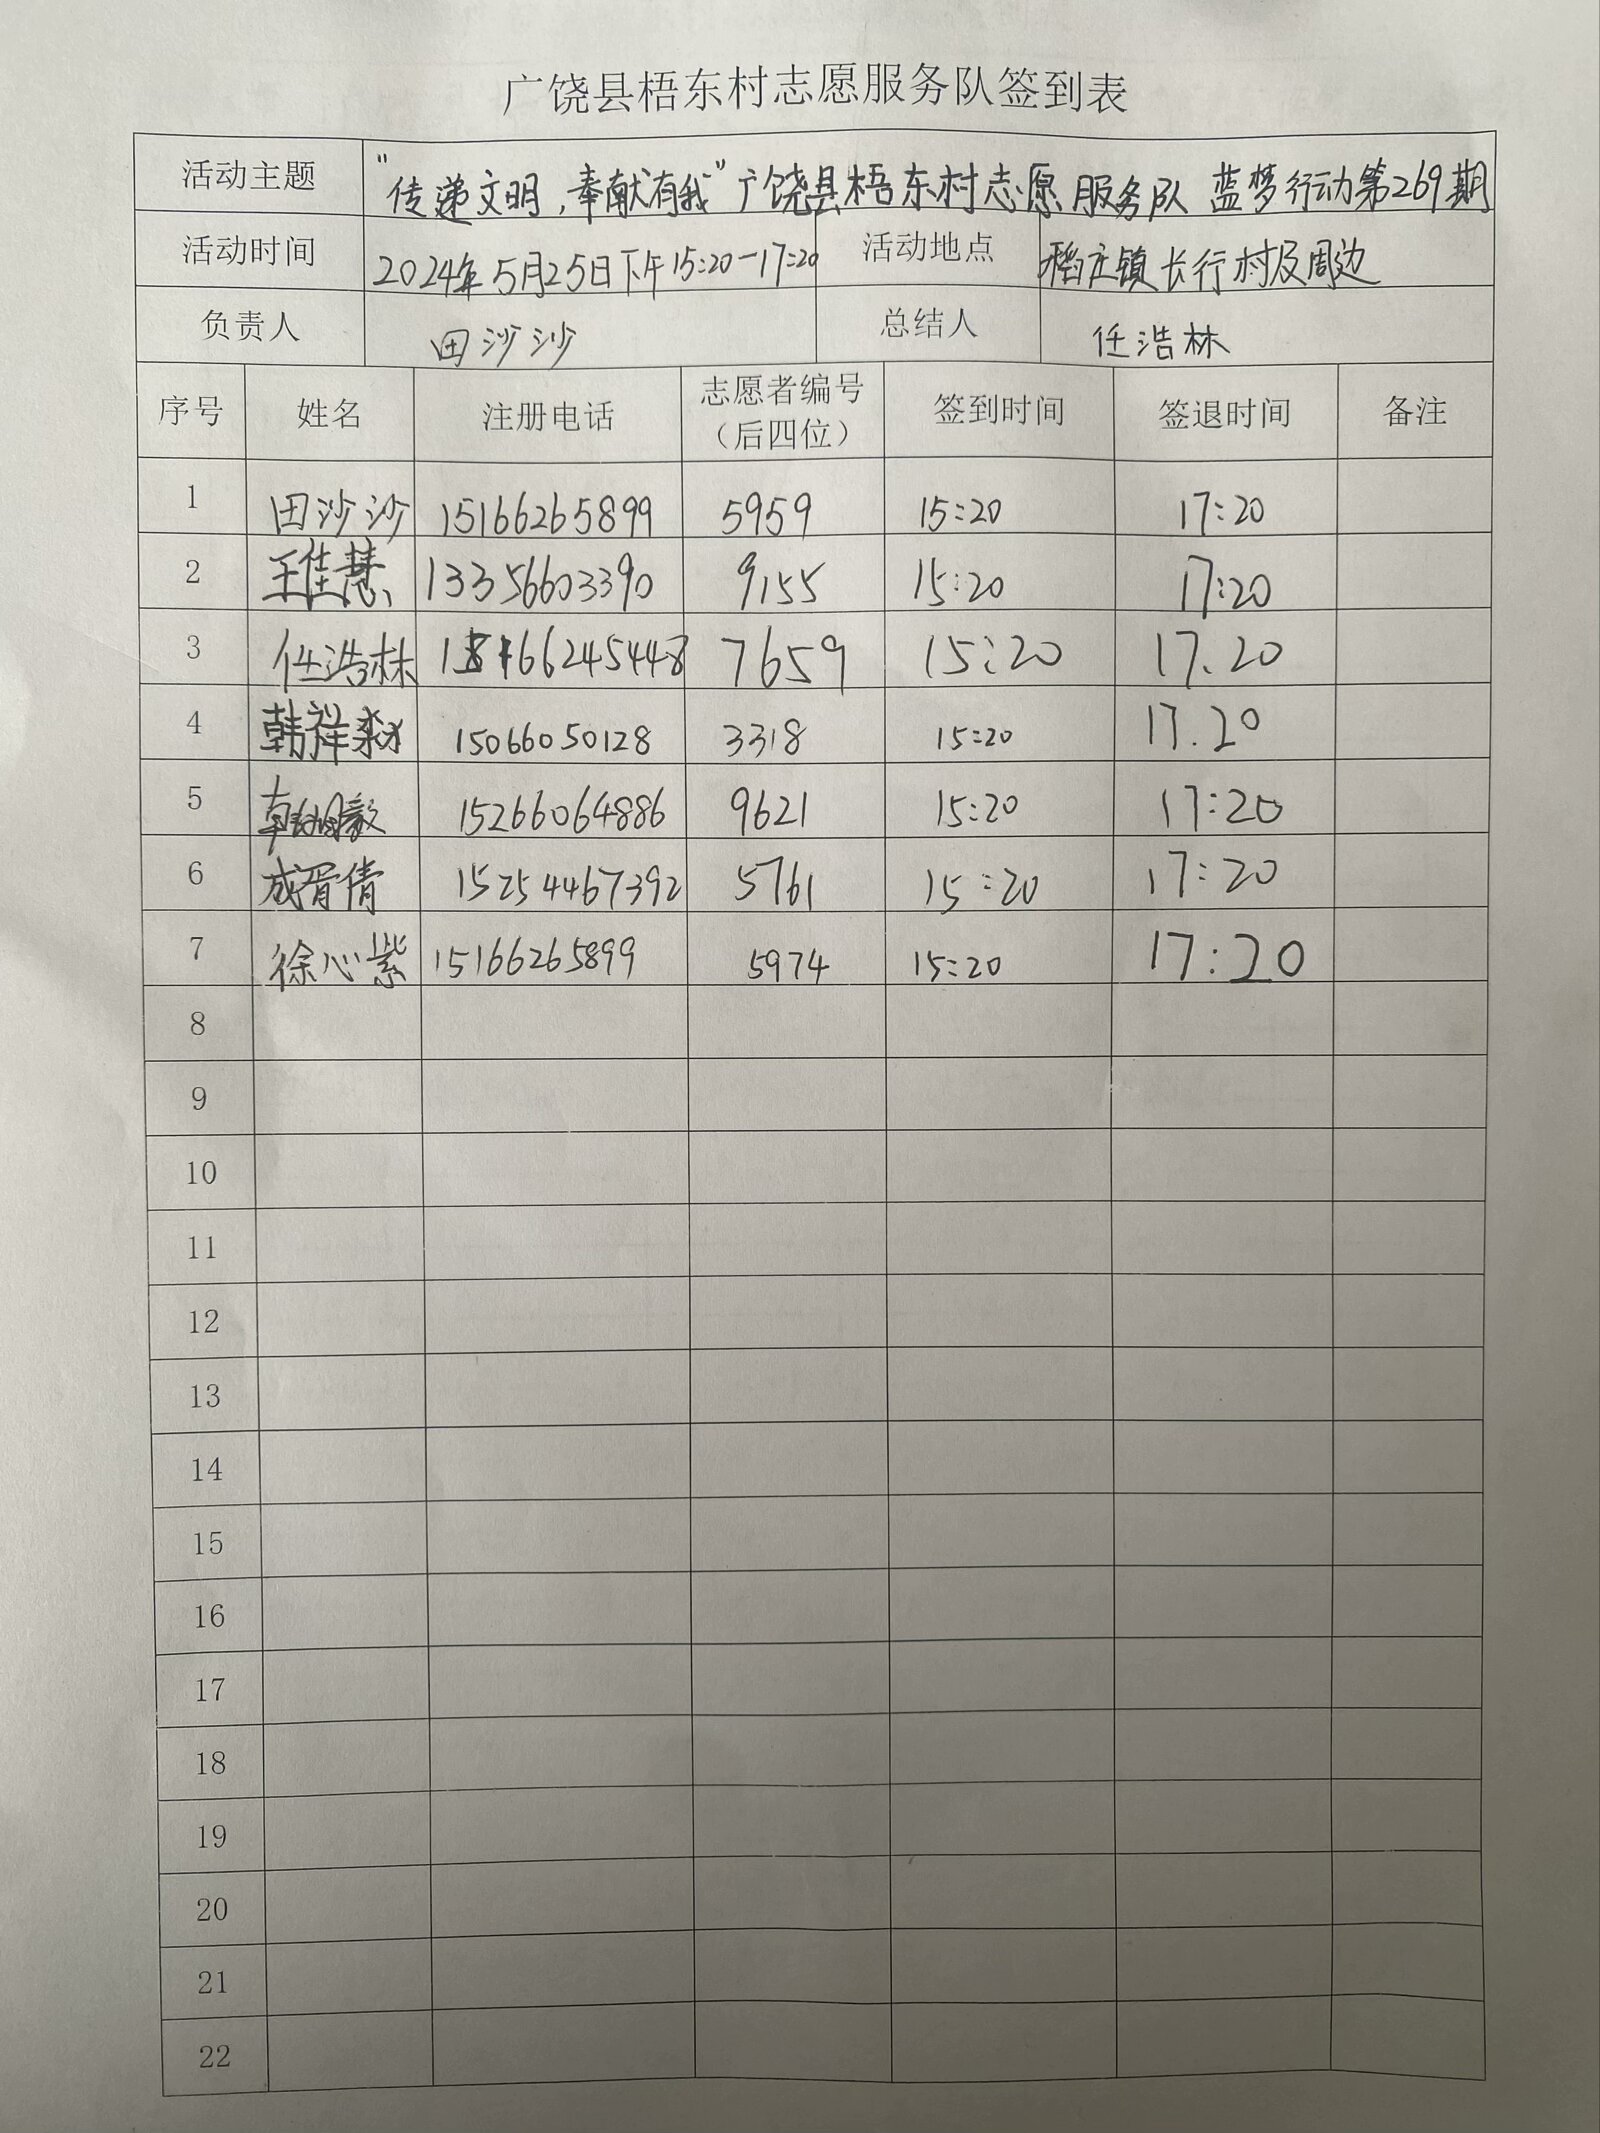 广饶县梧东村志愿服务队签到表
活动主题 “传递文明，奉献有我”广饶县梧东村志愿服务队 蓝梦行动第269期
活动时间 2024年5月25日下午15:20-17:20 活动地点 稻庄镇长行村及周边
负责人 田沙沙 总结人 任浩林
序号 姓名 注册电话 志愿者编号（后四位） 签到时间 签退时间 备注
1 田沙沙 15166265899 5959 15:20 17:20
2 王佳慧 13356603390 9155 15:20 17:20
3 任浩林 66245448 7659 15:20 17.20
4 韩祥淼 15066050128 3318 15:20 17.20
5 15266064886 9621 15:20 17:20
6 成胥倩 15254467392 5761 15:20 17:20
7 徐心紫 15166265899 5974 15:20 17:20
8
9
10
11
12
13
14
15
16
17
18
19
20
21
22